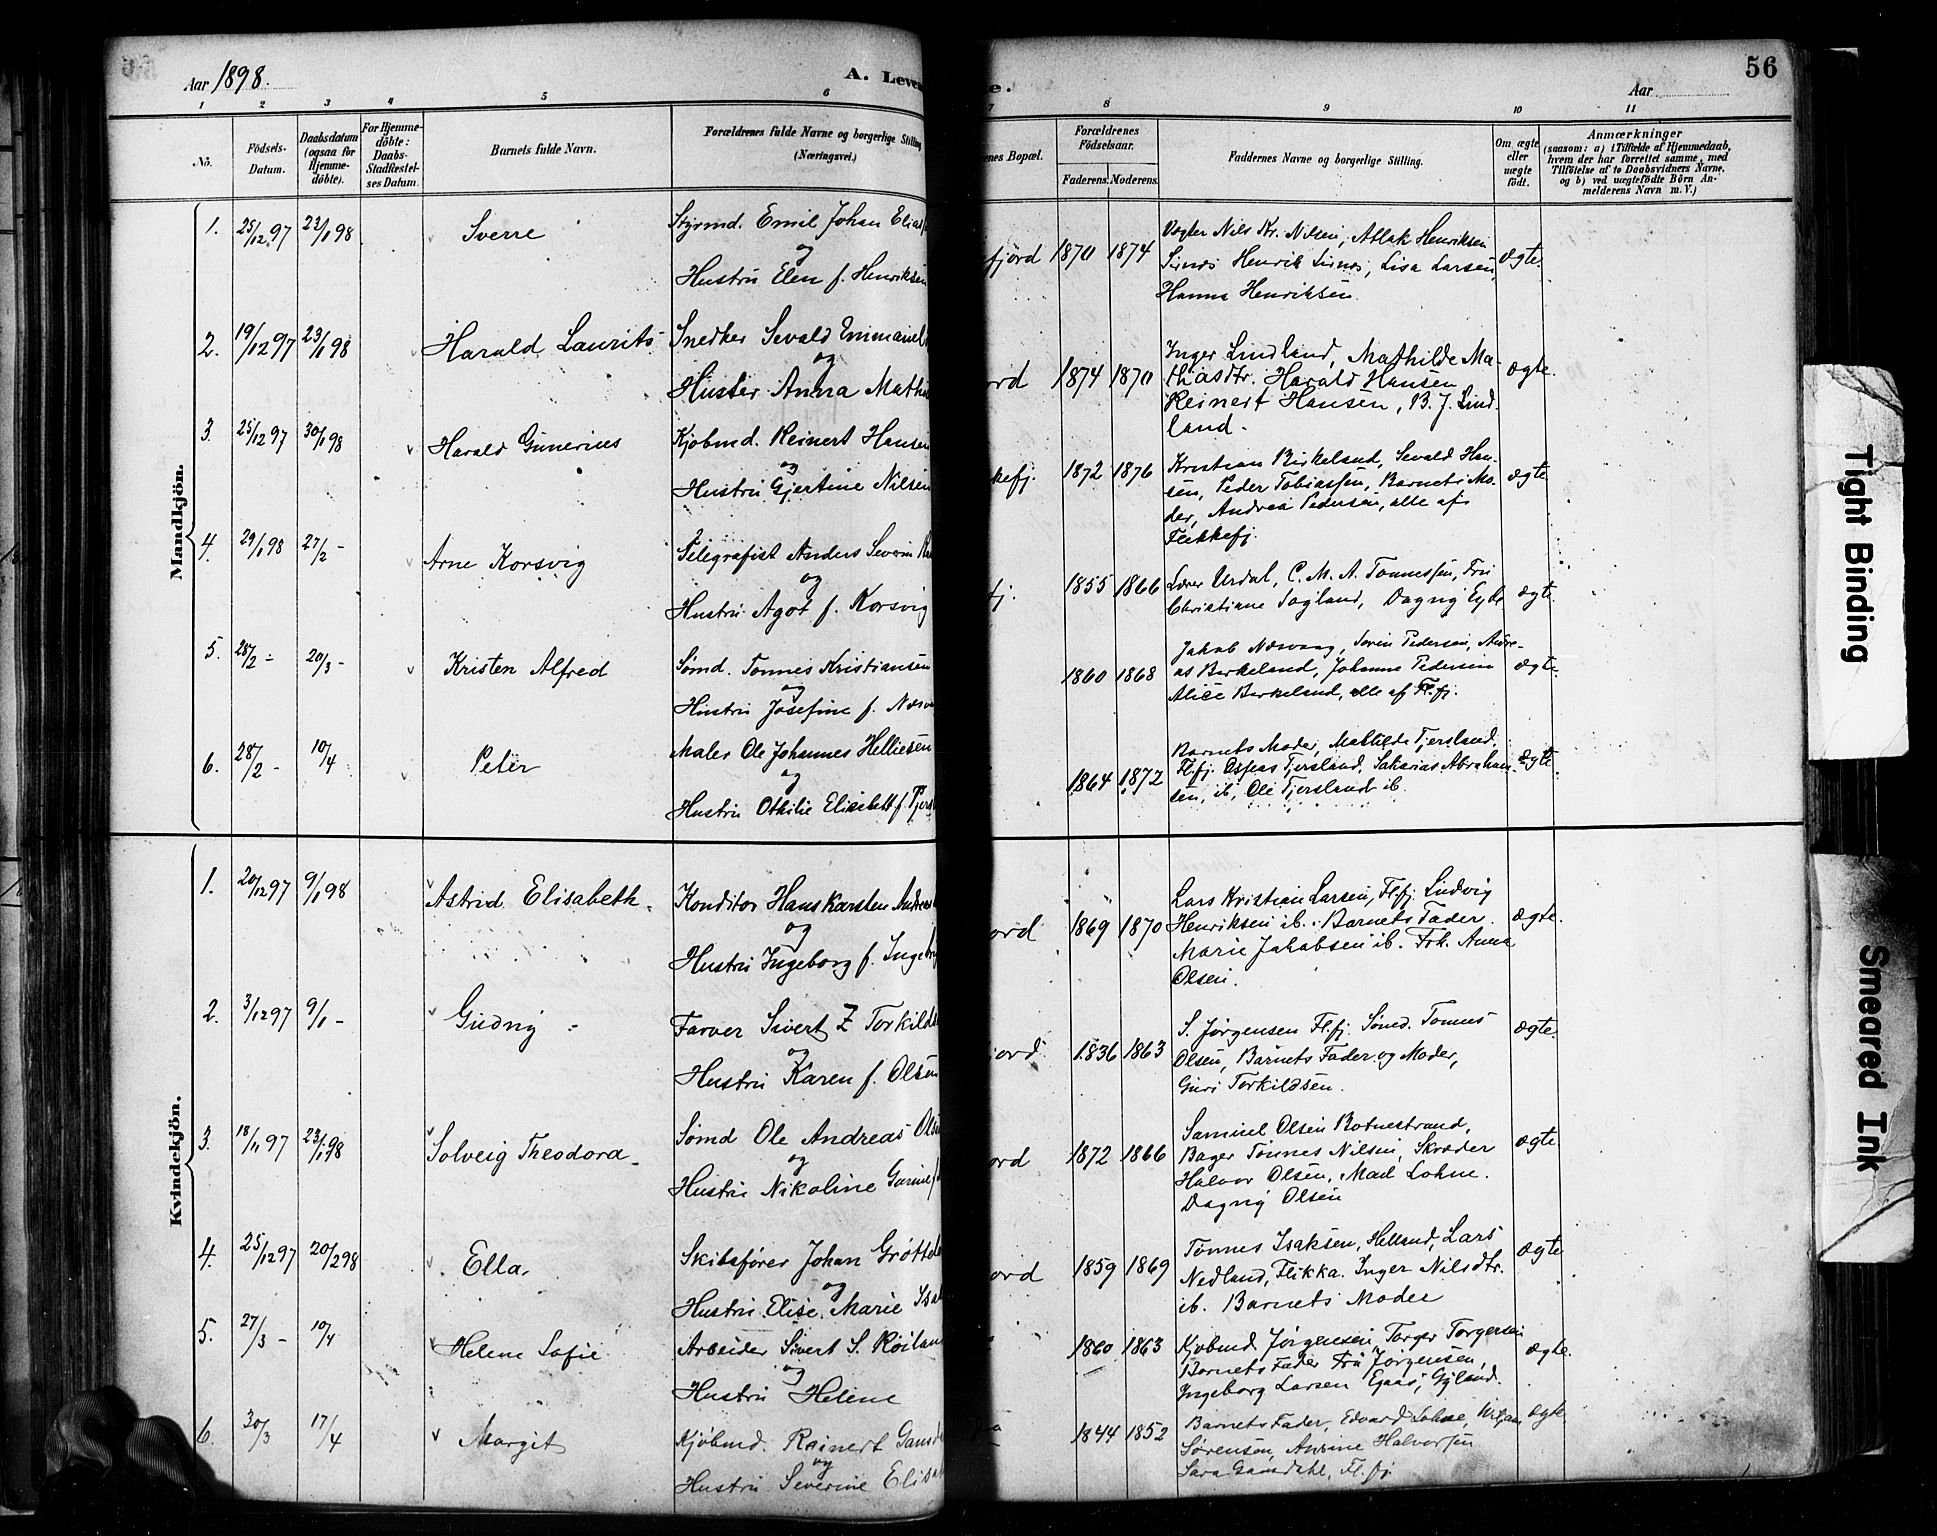 Aar 1898.
A. Leven
e.
Aar
56
1 2 3 4 5 6 7 8 9 10 11
No.
Födsels-Datum.
Daabsdatum (ogsaa for Hjemme-döbte).
For Hjemme-döbte: Daabs-Stadfæstel-ses Datum.
Barnets fulde Navn.
Forældrenes fulde Navne og borgerlige Stilling (Næringsvei.)
enes Bopæl.
Forældrenes Födselsaar.
Faderens. Moderens.
Faddernes Navne og borgerlige Stilling.
Om ægte eller uægte født.
Anmærkninger
(saasom: a) i Tilfælde af Hjemmedaab,
hvem der har forrettet samme, med
Tilföielse af to Daabsvidners Navne,
og b) ved uægtefödte Börn An-
melderens Navn m. V.)
Mandkjön.
1. 25/12 97 23/1 98 Sverre
Styrmd. Emil Johan Elias
og
Hustru Elen f. Henriksen
fjord 1870 1874
Vægter Nils Kr. Nilsen, Atlak Henriksen
Sirnes Henrik Sirnes, Lisa Larsen,
Hanna Henriksen.
ægte.
2. 19/12 97 23/1 98 Harald Laurits
Snedker Sevald Emmanuel
og
Huster Anna Mathi
ord 1874 1870
Inger Lindland, Mathilde Ma-
thiasdtr. Harald Hansen
Reinert Hansen, B. J. Lind-
land.
ægte.
3. 25/12 97 30/1 98 Harald Gunerius
Kjøbmd. Reinert Hansen
og
Hustru Gjertine Nilsen
kefj. 1872 1876
Kristian Birkeland, Sevald Han-
sen, Peder Tobiassen, Barnets Mo-
der, Andrea Pedersen, alle af
Flekkefj.
ægte
4. 29/1 98 27/2 - Arne Korsvig
Telegrafist Anders Severin
og
Hustru Agot f. Korsvig
fj. 1855 1866
Lærer Urdal, C. M. A. Tønnessen, Fru
Christiane Sogland, Dagny Eyde
ægte
5. 28/2 - 20/3 - Kristen Alfred
Sømd. Tønnes Kristiansen
og
Hustru Josefine f. Næsv
1860 1868
Jakob Næsvaag, Søren Pedersen, Andre-
as Birkeland, Johanne Pedersen
Alice Birkeland, alle af Fl.fj.
ægte.
6. 28/2 - 10/4 Peter
Maler Ole Johannes Helliesen
og
Hustru Othilie Elisabeth f. Tjers
1864 1872
Barnets Moder, Mathilde Tjersland,
Fl.fj. Aspeas Tjersland, Sakarias Abraham-
sen, ib, Ole Tjersland ib.
ægte
Kvindekjön.
1. 20/12 97 9/1 98 Astrid Elisabeth.
Konditor Hans Karsten Andreas
og
Hustru Ingeborg f. Ingeb
ord 1869 1870
Lars Kristian Larsen, Fl.fj. Ludvig
Henriksen ib. Barnets Fader.
Marie Jakobsen ib. Frk. Anna
Olsen.
ægte.
2. 3/12 97 9/1 - Gudny
Farver Sivert Z Torkilds
og
Hustru Karen f. Olsen
jord 1836 1863
S. Jørgensen Fl.fj. Sømd. Tønnes
Olsen, Barnets Fader og Moder,
Guri Torkildsen.
ægte.
3. 18/11 97 23/1 98 Solveig Theodora
Sømd Ole Andreas Olsen
og
Hustru Nikoline Gurine
ord 1872 1866
Samuel Olsen Botnestrand,
Bager Tønnes Nilsen, Skræder
Halvor Olsen, Mael Lohne.
Dagny Olsen
ægte
4. 25/12 97 20/2 98 Ella.
Skibsfører Johan Grøttel
og
Hustru Elise Marie Isa
ord 1859 1869
Tønnes Isaksen, Helland, Lars
Nedland, Flikka. Inger Nilsdtr.
ib. Barnets Moder
ægte
5. 27/3 - 10/4 Helene Sofie
Arbeider Sivert S. Røilan
og
Hustru Helene
1860 1863
Kjøbmd. Jørgensen, Torger Torgersen
Barnets Fader Fru Jørgensen,
Ingeborg Larsen Egaas, Gyland.
ægte.
6. 30/3 17/4 Margit
Kjøbmd. Reinert Gamd
og
Hustru Severine Elisa
1844 1852
Barnets Fader, Edvard Lohne,
Sørensen, Halvorsen
Sara Gamdahl, Fl.fj
ægte.
Tight Binding
Smeared Ink